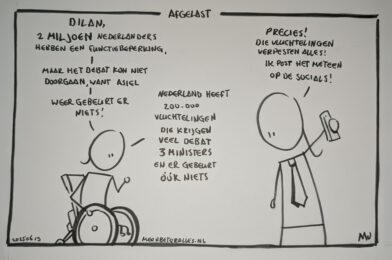 AFGELAST
DILAN,
2 MILJOEN NEDERLANDERS
HEBBEN EEN FUNCTIEBEPERKING,
MAAR HET DEBAT KON NIET
DOORGAAN, WANT ASIEL
WEER GEBEURT ER
NIETS!
NEDERLAND HEEFT
200.000
VLUCHTELINGEN
DIE KRIJGEN
VEEL DEBAT
3 MINISTERS
EN ER GEBEURT
ÓÓK NIETS
PRECIES!
DIE VLUCHTELINGEN
VERPESTEN ALLES!
IK POST HET METEEN
OP DE SOCIALS!
20250619
MEERBETERALLES.NL
MW